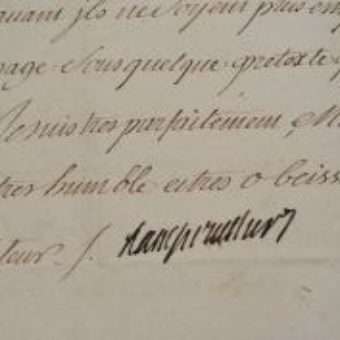 avant jls ne Soyent plus em
sage Sous quelque pretexte q
Je suis tres parfaitement, M
tres humble et tres o beiss
teur. /.